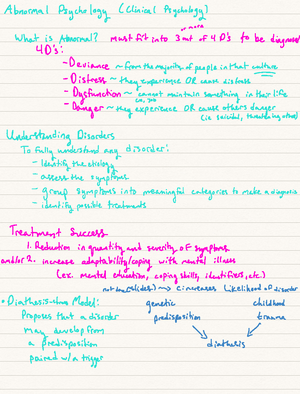 Abnormal Psychology (Clinical Psychology)
or more
What is Abnormal? Must fit into 3 out of 4 D's to be diagnosed
4D's:
- Deviance → from the majority of people in that culture
- Distress → they experience OR cause distress
- Dysfunction → cannot maintain something in their life
- Danger → they experience OR cause others danger
(ie suicidal, threatening others)
Understanding Disorders
To fully understand any disorder:
- Identify the etiology
- assess the symptoms
- group symptoms into meaningful categories to make a diagnosis
- identify possible treatments
Treatment Success
1. Reduction in quantity and severity of symptoms
and/or 2. increase adaptability/coping with mental illness
(ex. mental education, coping skills, identifiers, etc.)
→ increases likelihood of disorder
• Diathesis-stress Model:
Proposes that a disorder
may develop from
a predisposition
paired w/a trigger
genetic
predisposition
childhood
trauma
diathesis